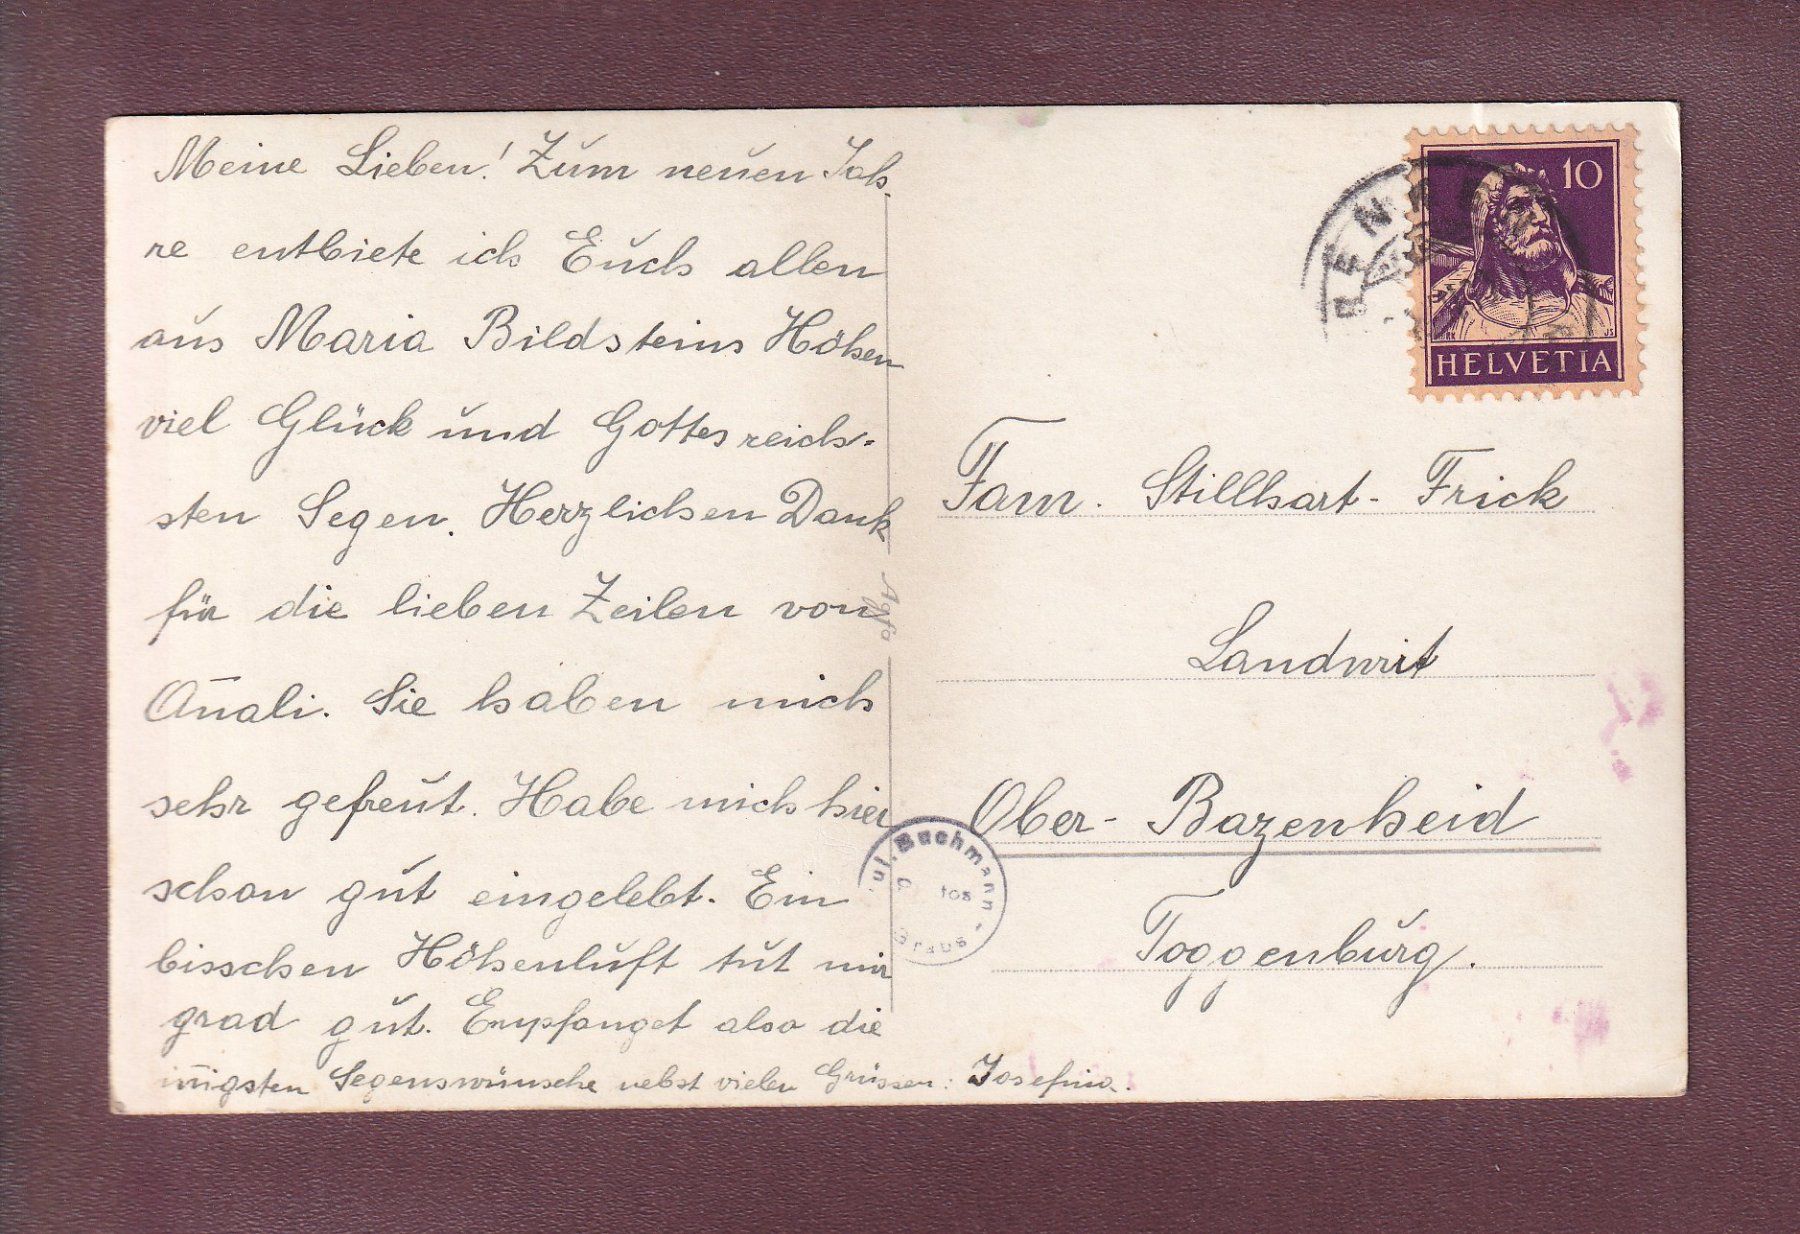 Meine Lieben! Zum neuen Jah-
re entbiete ich Euch allen
aus Maria Bildsteins Höhen
viel Glück und Gottes reich-
sten Segen. Herzlichen Dank
für die lieben Zeilen von
Aṅali. Sie haben mich
sehr gefreut. Habe mich hier
schon gut eingelebt. Ein
bisschen Höhenluft tut mir
grad gut. Empfanget also die
innigsten Segenswünsche nebst vielen Grüssen: Josefina.
Agfa
10
HELVETIA
Fam. Stillhart-Frick
Landwirt
Ober-Bazenheid
Toggenburg.
Jul. Buchmann